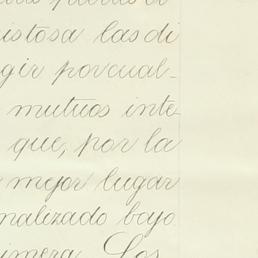 istosa las di
gir por cual-
mutuos inte
que, por la
mejor lugar
nalizado bajo
imera. Los